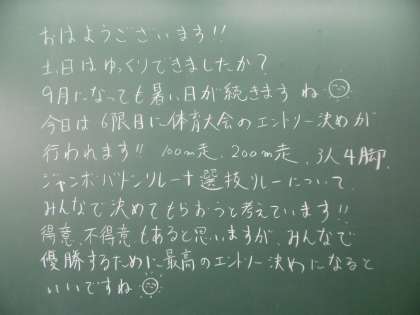 おはようございます!!
土日はゆっくりできましたか?
9月になっても暑い日が続きますね
今日は6限目に体育大会のエントリー決めが
行われます!! 100m走、200m走、3人4脚、
ジャンボバトンリレー+選抜リレーについて、
みんなで決めてもらおうと考えています!!
得意、不得意もあると思いますが、みんなで
優勝するために最高のエントリー決めになると
いいですね